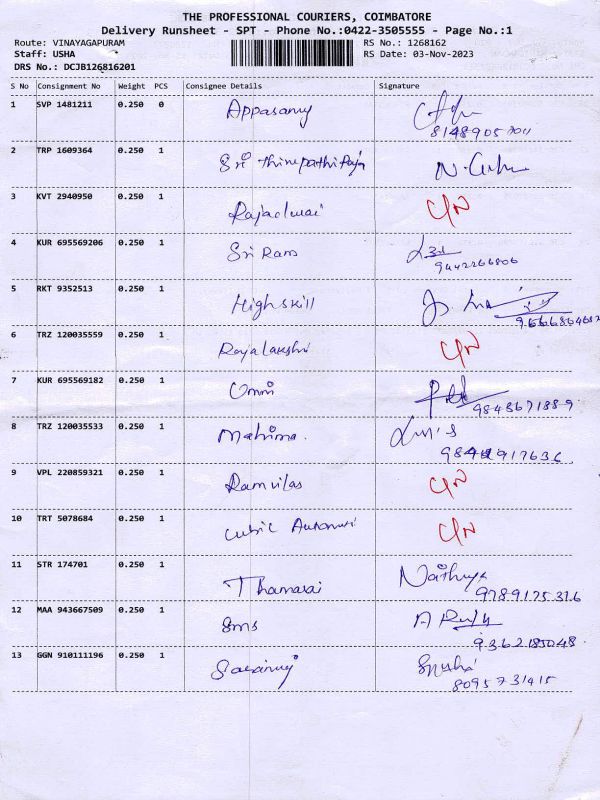 THE PROFESSIONAL COURIERS, COIMBATORE
Delivery Runsheet - SPT - Phone No.:0422-3505555 - Page No.:1
Route: VINAYAGAPURAM RS No.: 1268162
Staff: USHA RS Date: 03-Nov-2023
DRS No.: DCJB126816201
S No Consignment No Weight PCS Consignee Details Signature
1 SVP 1481211 0.250 0 Appasamy
2 TRP 1609364 0.250 1 Sri thirupathi Raja
3 KVT 2940950 0.250 1 C/N
4 KUR 695569206 0.250 1 Sri Ram
9442266806
5 RKT 9352513 0.250 1 High skill
6 TRZ 120035559 0.250 1 Rajalakshi C/N
7 KUR 695569182 0.250 1 Omni
9843671889
8 TRZ 120035533 0.250 1 Mahima.
9 VPL 220859321 0.250 1 Ramvilas C/N
10 TRT 5078684 0.250 1 Cubic C/N
11 STR 174701 0.250 1 Thamarai
9789175316
12 MAA 943667509 0.250 1 Sms
9362185048
13 GGN 910111196 0.250 1
8095731415